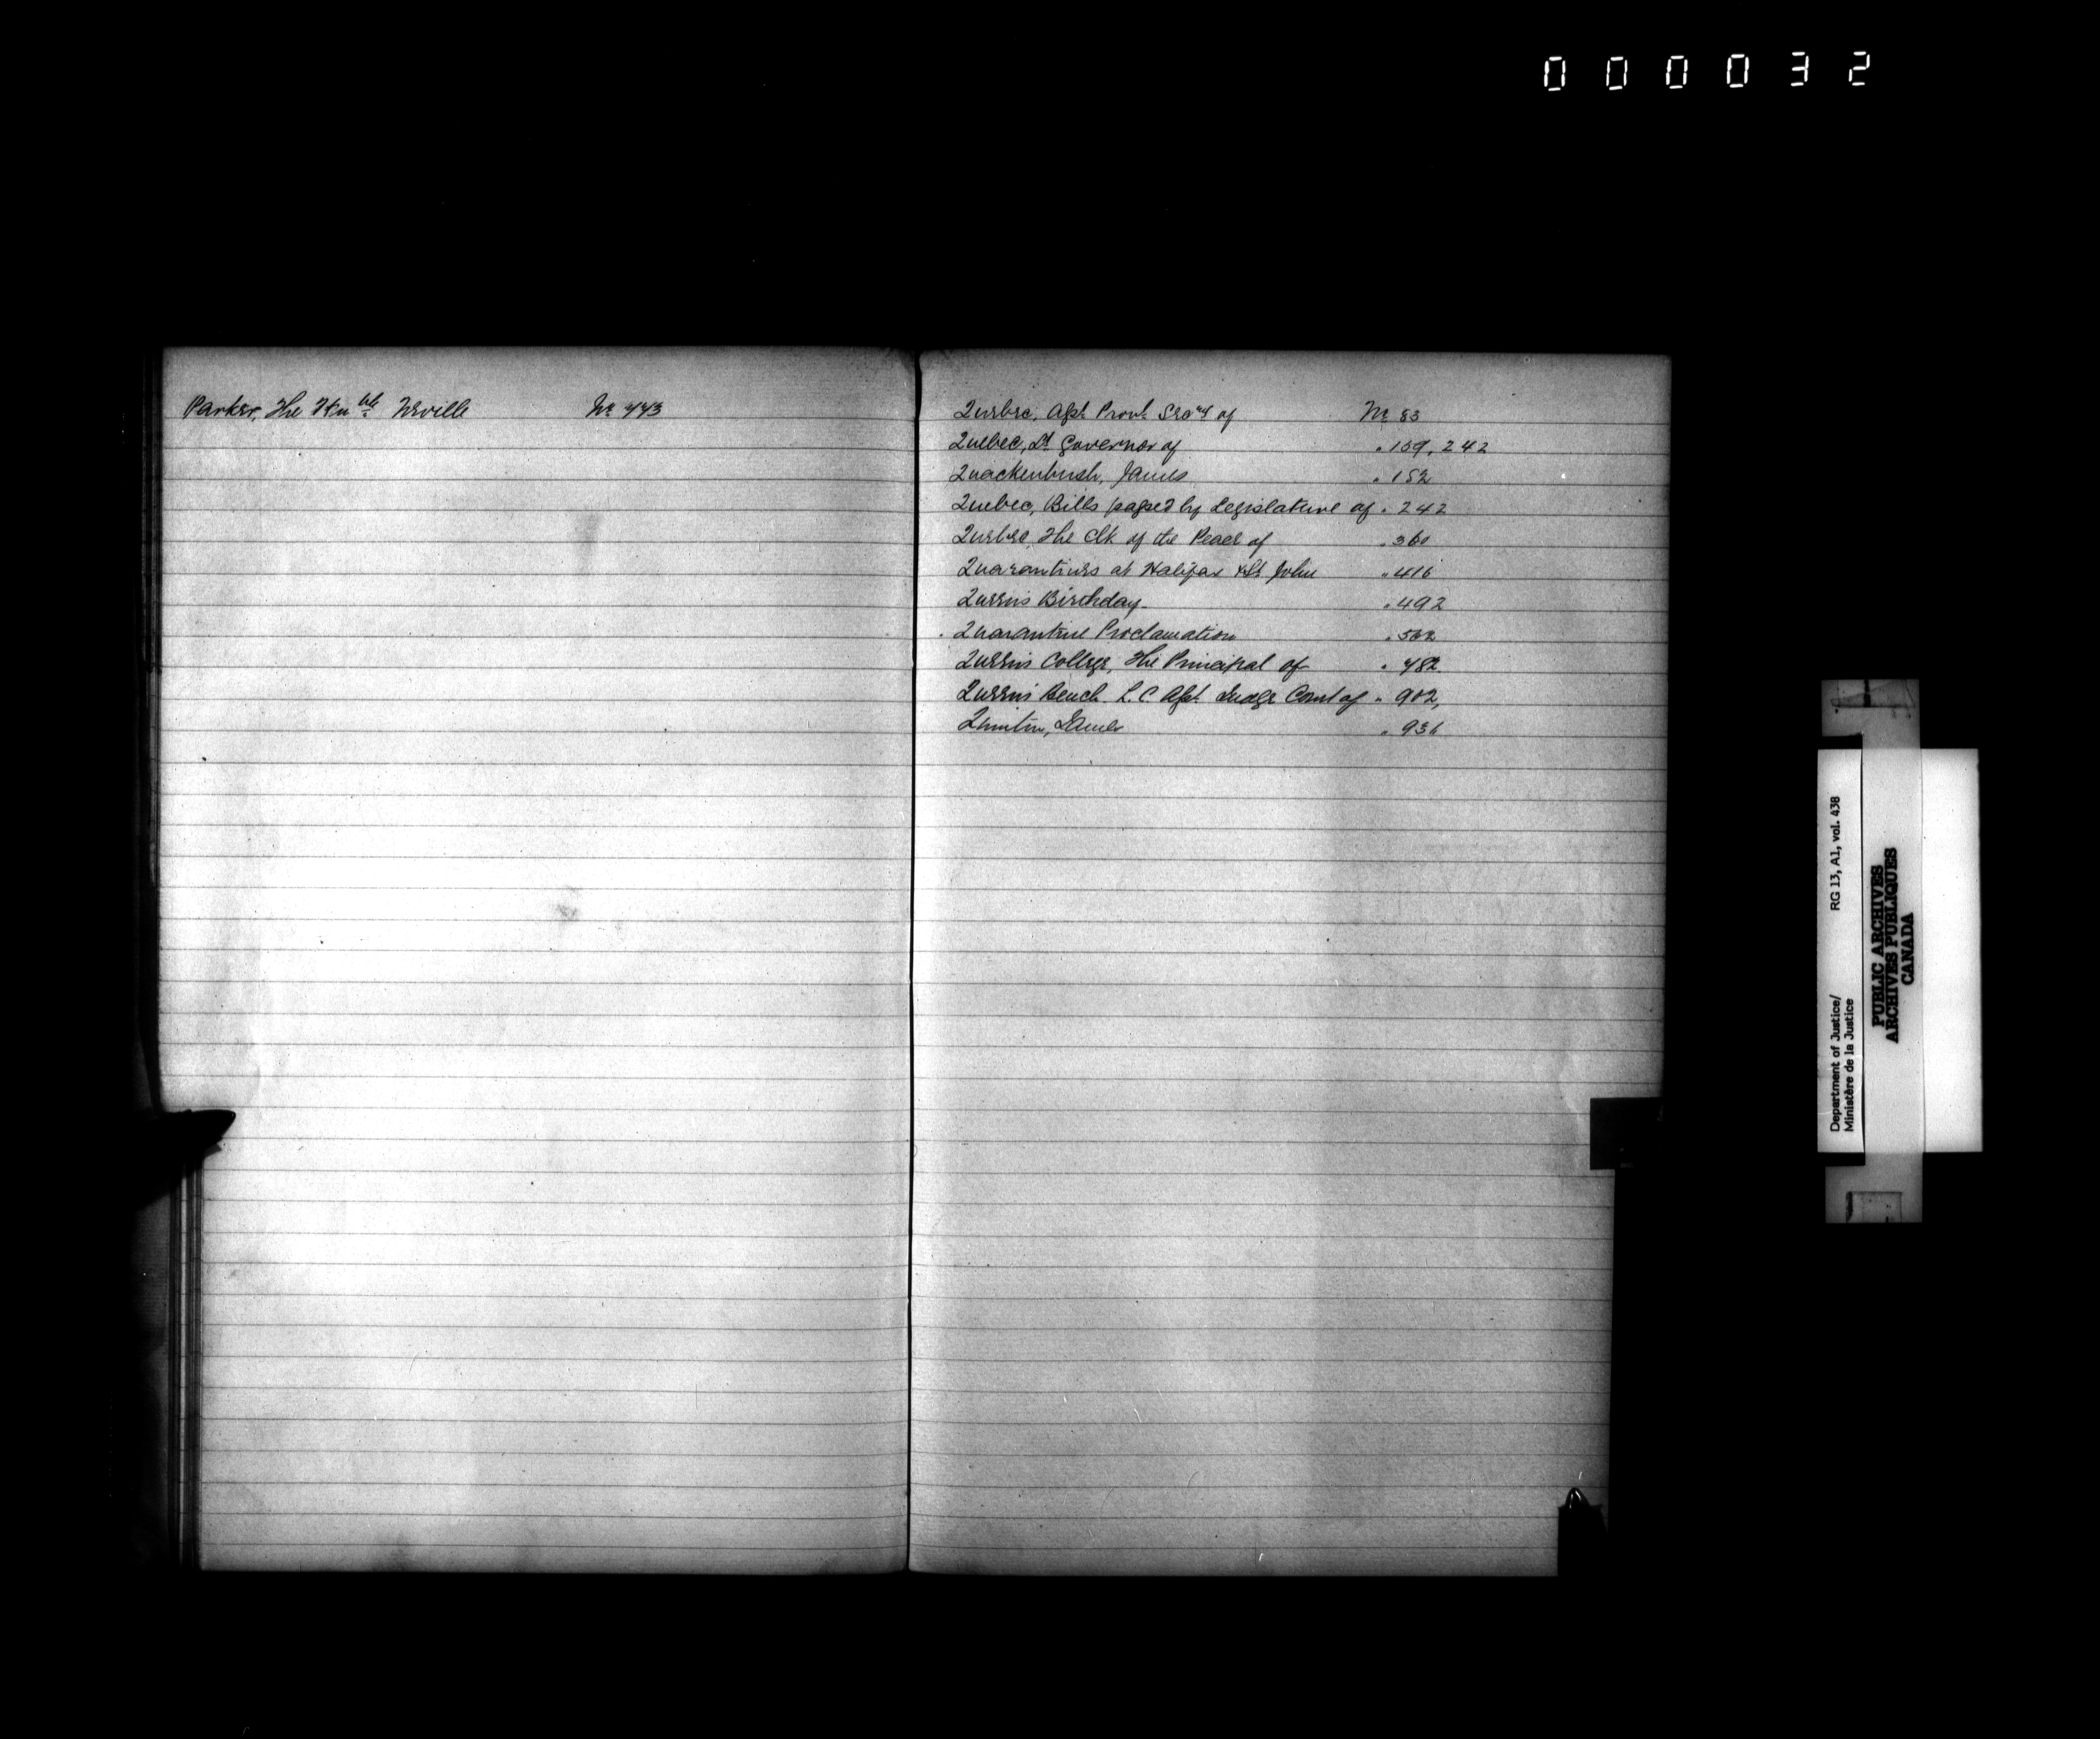 000032
Parker, The Hon ble Neville No 443
Quebec, Asst. Provl. Secry of No 83
Quebec, Lt Governor of " 159, 242
Quackenbush, James " 152
Quebec, Bills passed by Legislature of " 242
Quebec, The Clk of the Peace of " 360
Quarantines at Halifax & St John " 416
Queen's Birthday " 492
Quarantine Proclamation " 562
Queen's College, The Principal of " 482
Queen's Bench L.C. Asst. Judge Court of " 902,
Quinton, James " 936
Department of Justice/ RG 13, A1, vol. 438
Ministère de la Justice
PUBLIC ARCHIVES
ARCHIVES PUBLIQUES
CANADA